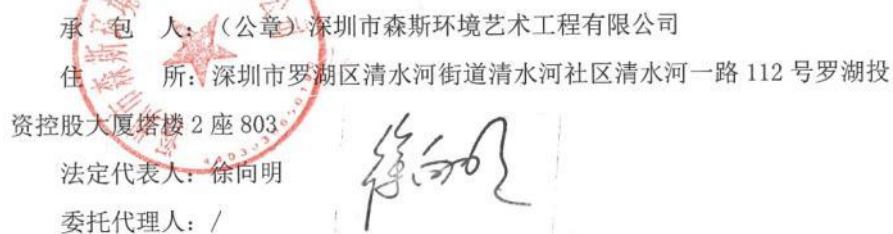 承 包 人：（公章）深圳市森斯环境艺术工程有限公司
住 所：深圳市罗湖区清水河街道清水河社区清水河一路 112 号罗湖投
资控股大厦塔楼 2 座 803
法定代表人：徐向明
徐向明
委托代理人：/